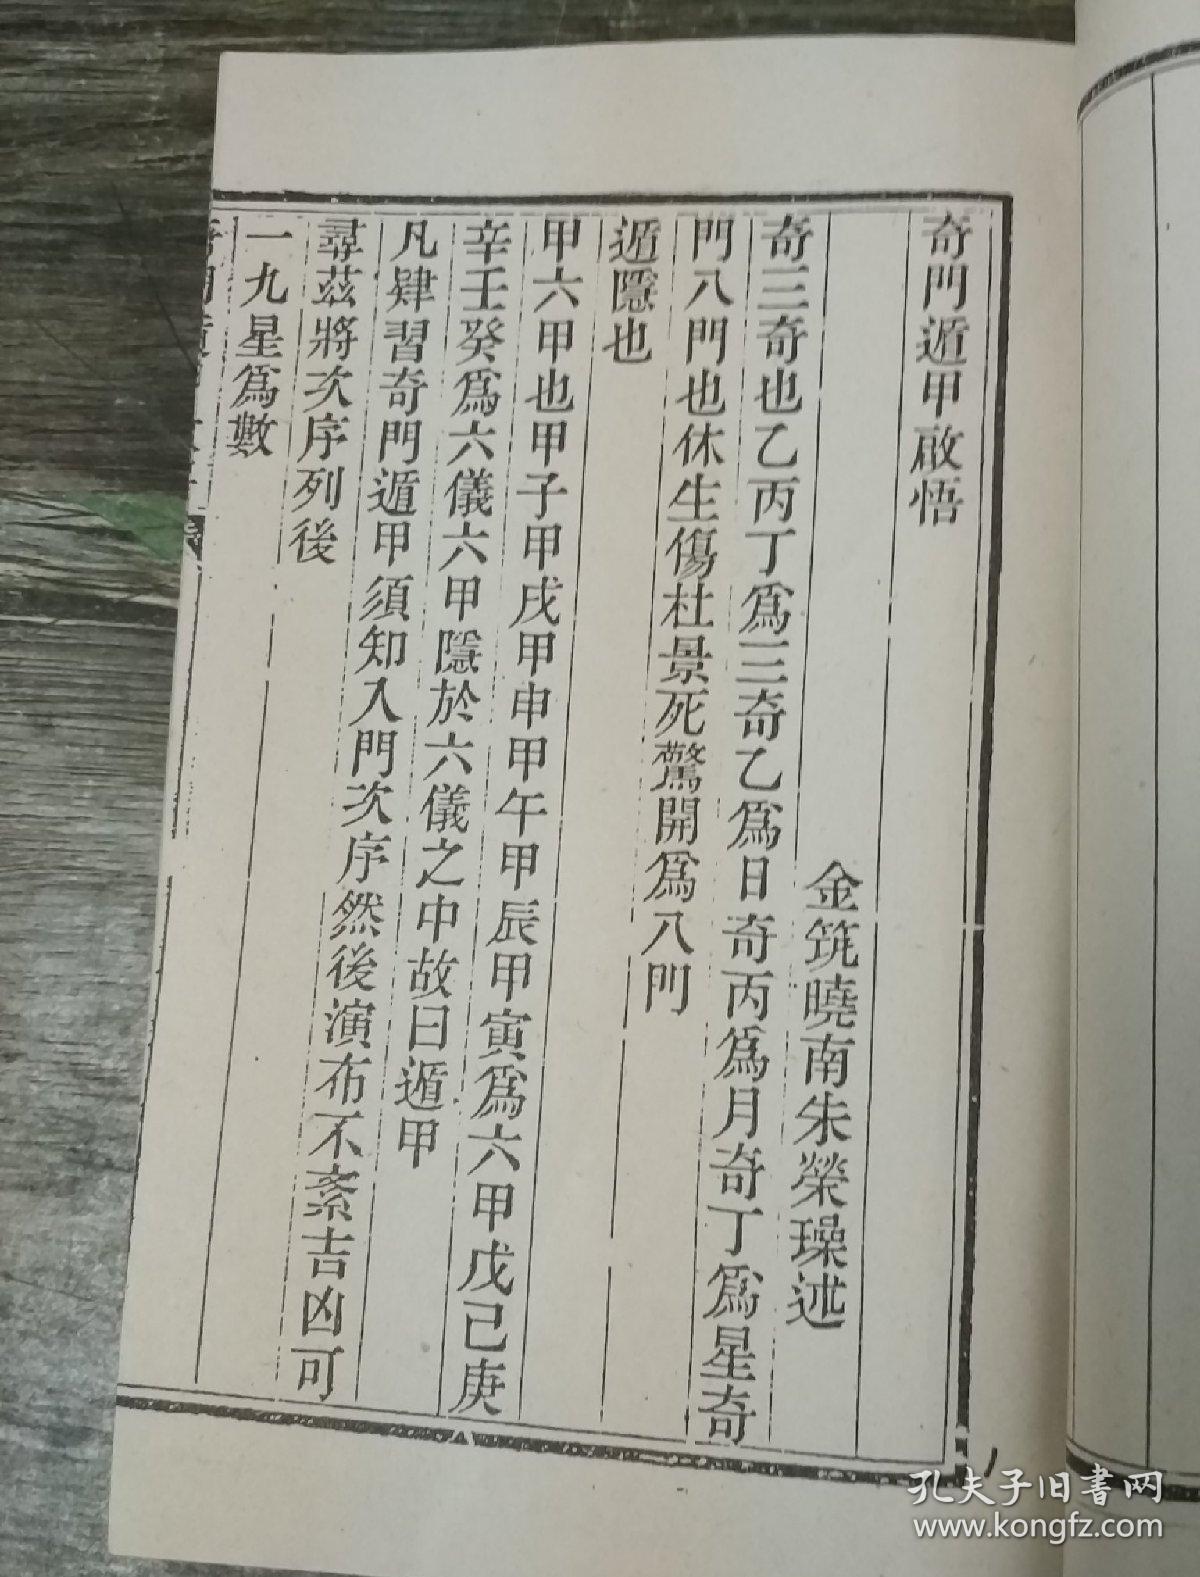 奇門遁甲啟悟
金筑曉南朱榮璪述
奇三奇也乙丙丁爲三奇乙爲日奇丙爲月奇丁爲星奇
門八門也休生傷杜景死驚開爲八門
遁隱也
甲六甲也甲子甲戌甲申甲午甲辰甲寅爲六甲戊己庚
辛壬癸爲六儀六甲隱於六儀之中故曰遁甲
凡肄習奇門遁甲須知入門次序然後演布不紊吉凶可
尋茲將次序列後
一九星爲數
孔夫子旧书网
www.kongfz.com